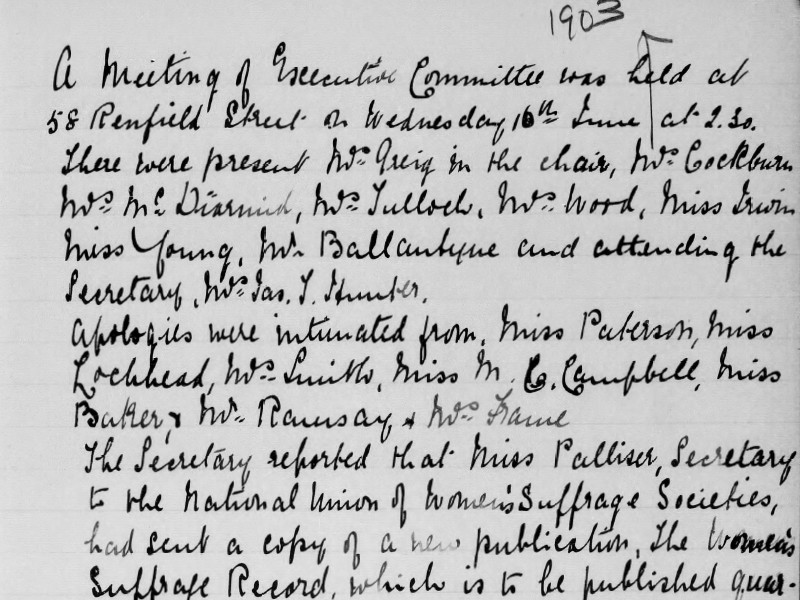 1903
A Meeting of Executive Committee was held at
58 Renfield Street on Wednesday 10th June at 2.30.
There were present Mrs Greig in the chair, Mrs Cockburn
Mrs Mc Diarmid, Mrs Tulloch, Mrs Wood, Miss Irwin
Miss Young, Mr Ballantyne and attending the
Secretary, Mrs Jas. T. Hunter.
Apologies were intimated from, Miss Paterson, Miss
Lochhead, Mrs Smith, Miss M. C. Campbell, Miss
Baker, & Mr. Ramsay & Mrs Frame
The Secretary reported that Miss Palliser, Secretary
to the National Union of Women's Suffrage Societies,
had sent a copy of a new publication, The Women's
Suffrage Record, which is to be published quar-